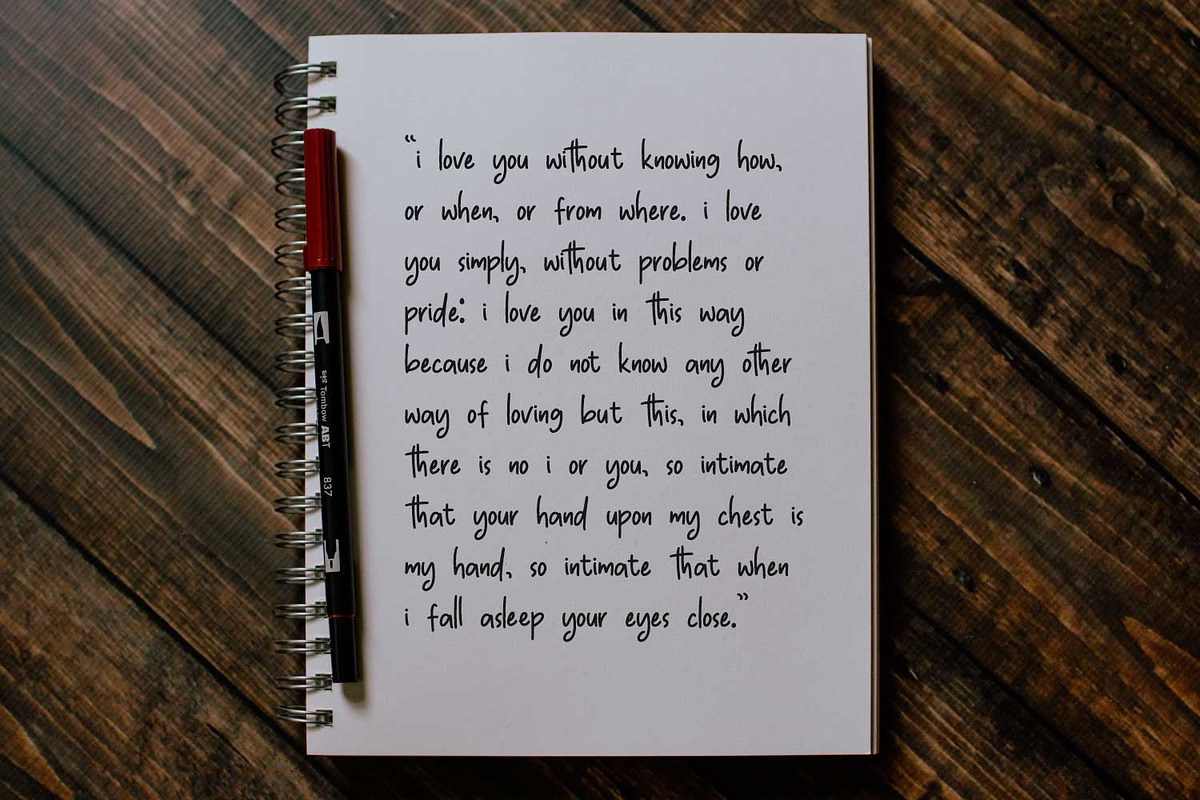 “i love you without knowing how,
or when, or from where. i love
you simply, without problems or
pride: i love you in this way
because i do not know any other
way of loving but this, in which
there is no i or you, so intimate
that your hand upon my chest is
my hand, so intimate that when
i fall asleep your eyes close.”
Tombow ABT
837